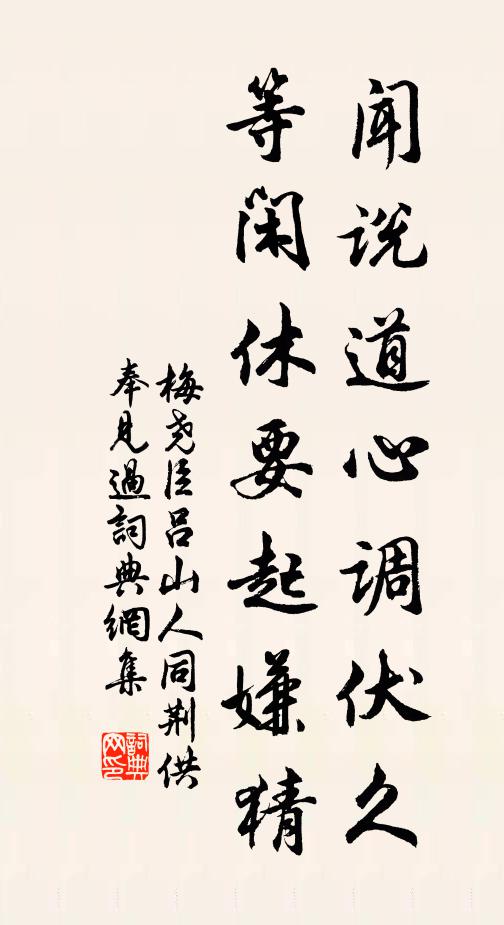 闻说道心调伏久
等闲休要起嫌猜
梅尧臣吕山人同荆供
奉见过詞典網集
詞典
网印